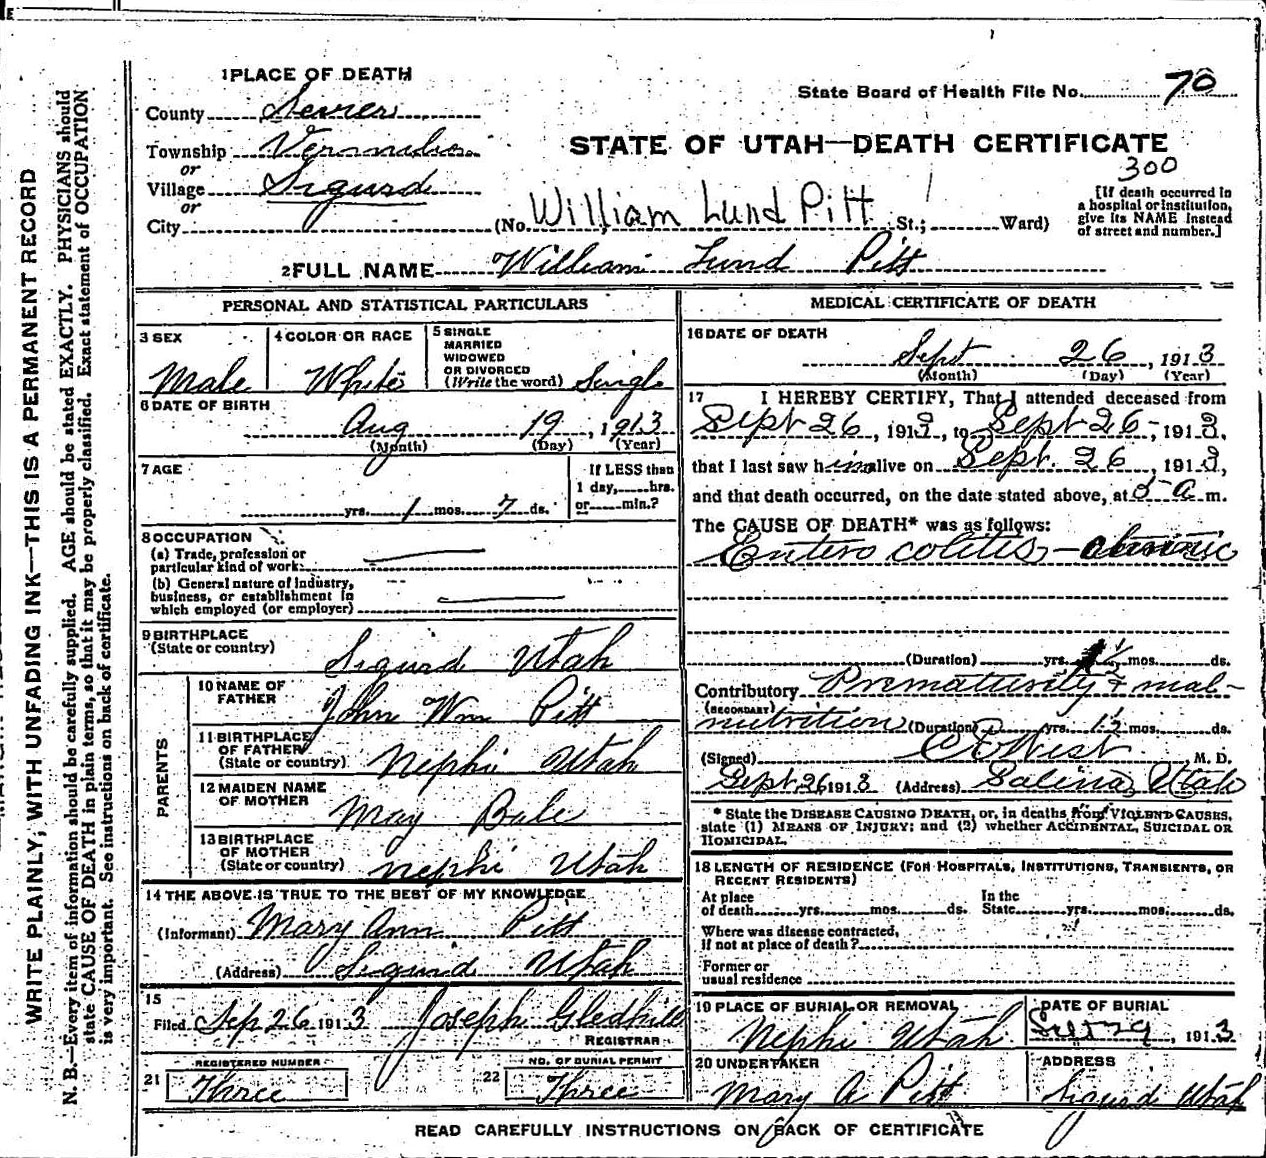 1 PLACE OF DEATH
County Sevier
State Board of Health File No. 70
Township Vermilion
or
STATE OF UTAH—DEATH CERTIFICATE
300
Village Sigurd
or
City
(No. William Lund Pitt St.; Ward)
[If death occurred in
a hospital or institution,
give its NAME instead
of street and number.]
2 FULL NAME William Lund Pitt
PERSONAL AND STATISTICAL PARTICULARS
3 SEX
Male
4 COLOR OR RACE
White
5 SINGLE
MARRIED
WIDOWED
OR DIVORCED
(Write the word) Single
6 DATE OF BIRTH
Aug 19, 1913
(Month) (Day) (Year)
7 AGE
yrs. 1 mos. 7 ds.
If LESS than
1 day, hrs.
or min.?
8 OCCUPATION
(a) Trade, profession or
particular kind of work:
(b) General nature of Industry,
business, or establishment in
which employed (or employer)
9 BIRTHPLACE
(State or country)
Sigurd Utah
PARENTS
10 NAME OF
FATHER
John Wm Pitt
11 BIRTHPLACE
OF FATHER
(State or country)
Nephi Utah
12 MAIDEN NAME
OF MOTHER
May Bale
13 BIRTHPLACE
OF MOTHER
(State or country)
Nephi Utah
14 THE ABOVE IS TRUE TO THE BEST OF MY KNOWLEDGE
(Informant) Mary Ann Pitt
(Address) Sigurd Utah
15
Filed Sep 26 1913 Joseph Gledhill
REGISTRAR
REGISTERED NUMBER
21 Three
NO. OF BURIAL PERMIT
22 Three
MEDICAL CERTIFICATE OF DEATH
16 DATE OF DEATH
Sept 26, 1913
(Month) (Day) (Year)
17 I HEREBY CERTIFY, That I attended deceased from
Sept 26, 1913, to Sept 26, 1913,
that I last saw him alive on Sept. 26, 1913,
and that death occurred, on the date stated above, at 5 a m.
The CAUSE OF DEATH* was as follows:
Entero colitis - chronic
(Duration) yrs. mos. ds.
Contributory Prematurity & mal-
(SECONDARY)
nutrition (Duration) yrs. 1½ mos. ds.
(Signed) West M. D.
Sept 26 1913 (Address) Salina, Utah
* State the DISEASE CAUSING DEATH, or, in deaths from VIOLENT CAUSES,
state (1) MEANS OF INJURY; and (2) whether ACCIDENTAL, SUICIDAL OR
HOMICIDAL.
18 LENGTH OF RESIDENCE (FOR HOSPITALS, INSTITUTIONS, TRANSIENTS, OR
RECENT RESIDENTS)
At place
of death yrs. mos. ds.
In the
State yrs. mos. ds.
Where was disease contracted,
if not at place of death?
Former or
usual residence
19 PLACE OF BURIAL OR REMOVAL
Nephi Utah
DATE OF BURIAL
29, 1913
20 UNDERTAKER
Mary A Pitt
ADDRESS
Sigurd Utah
READ CAREFULLY INSTRUCTIONS ON BACK OF CERTIFICATE
WRITE PLAINLY, WITH UNFADING INK—THIS IS A PERMANENT RECORD
N. B.—Every item of information should be carefully supplied. AGE should be stated EXACTLY. PHYSICIANS should
state CAUSE OF DEATH in plain terms, so that it may be properly classified. Exact statement of OCCUPATION
is very important. See instructions on back of certificate.